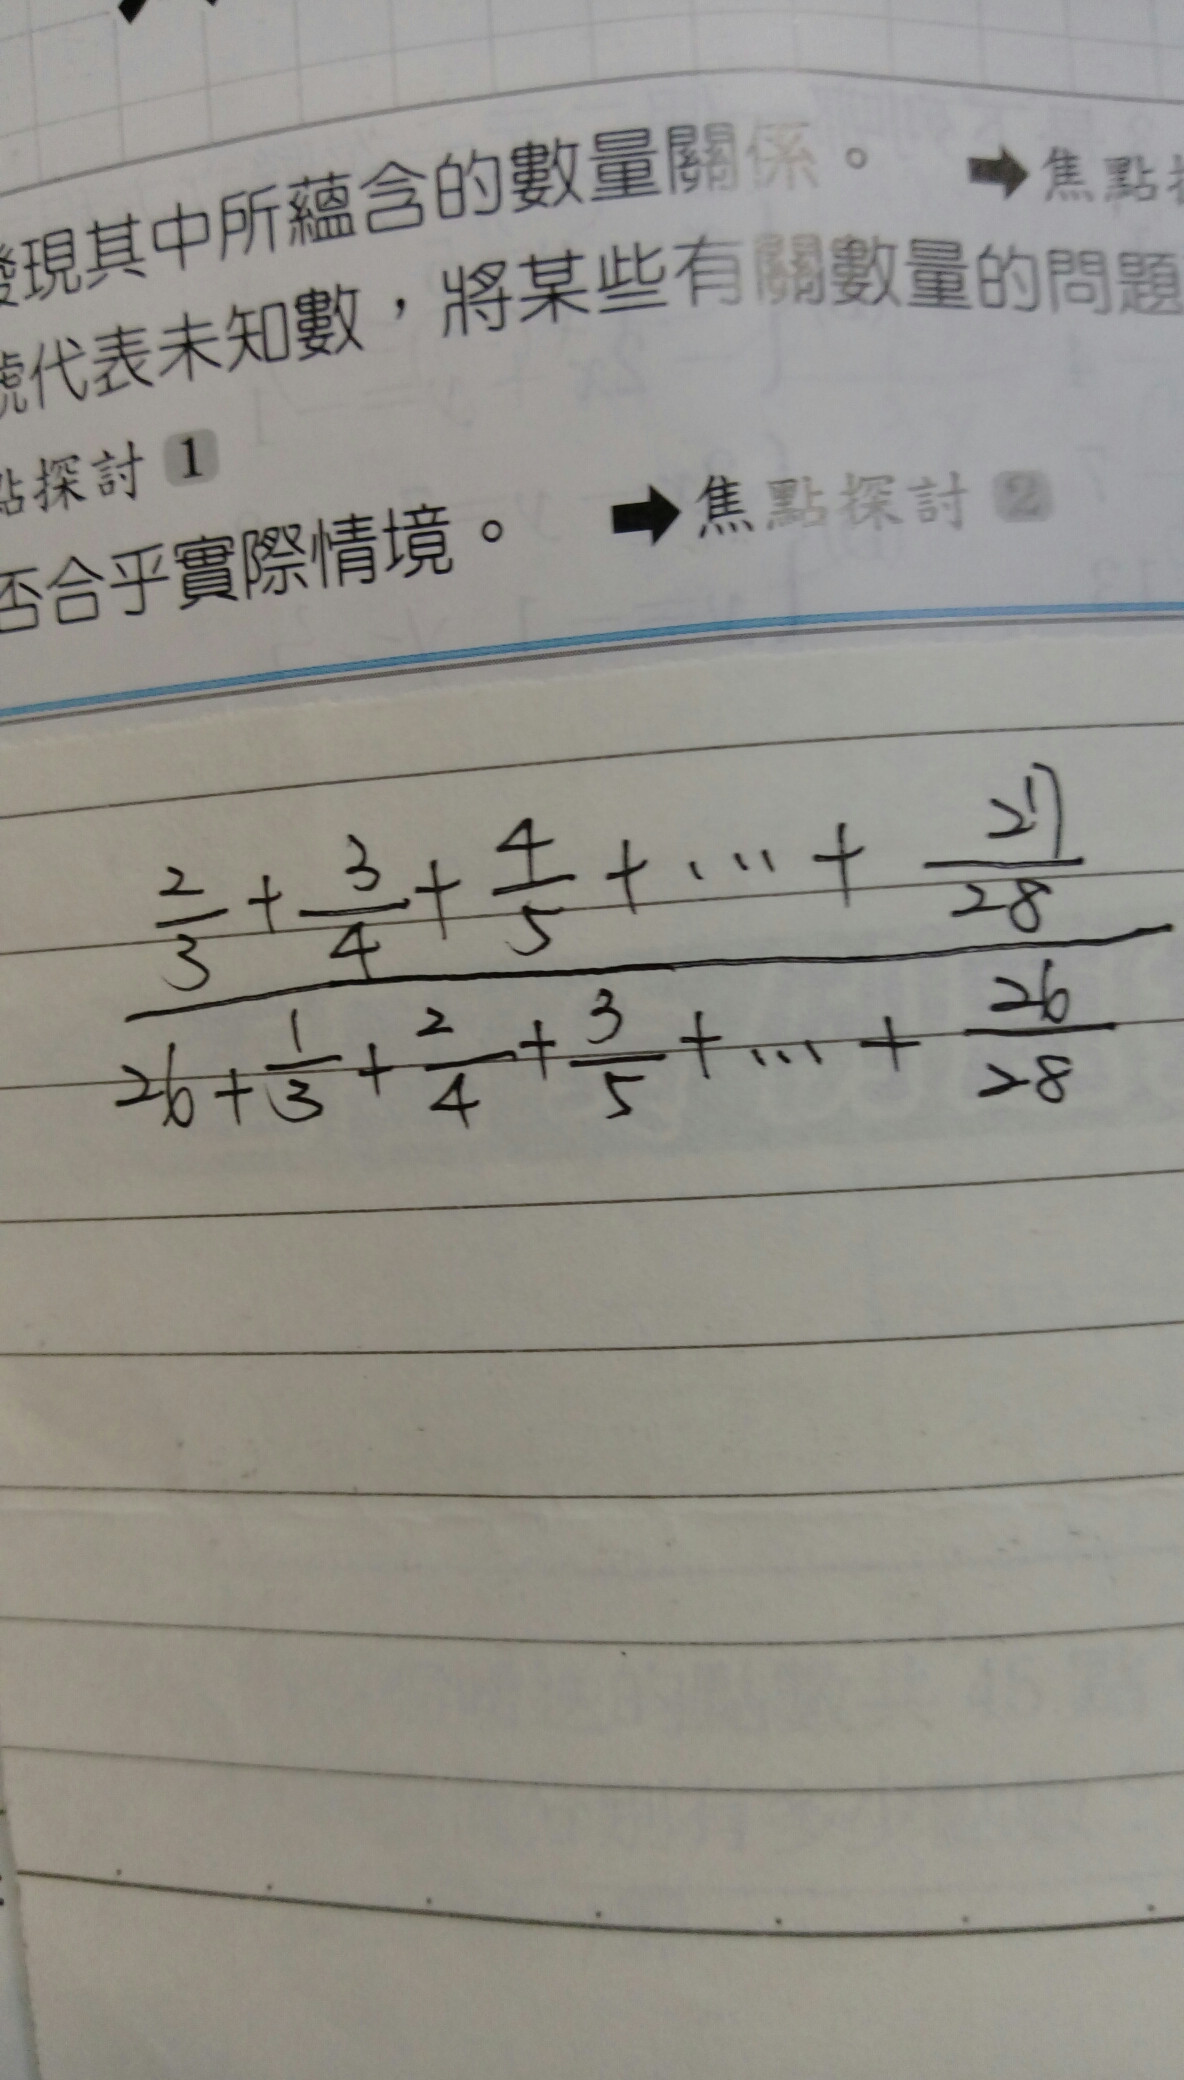 發現其中所蘊含的數量關係。 ➡焦點
號代表未知數,將某些有關數量的問題
點探討 1
否合乎實際情境。 ➡焦點探討 2
2/3 + 3/4 + 4/5 + ... + 27/28
26 + 1/3 + 2/4 + 3/5 + ... + 26/28